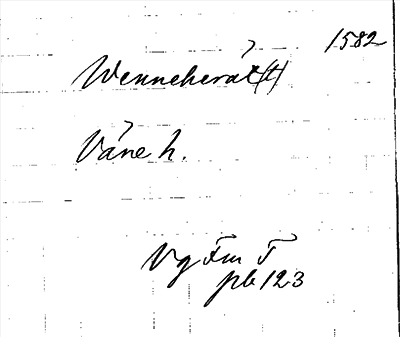 1582
Wenneherát(t)
Våne h.
Vg Fm T
pb 123